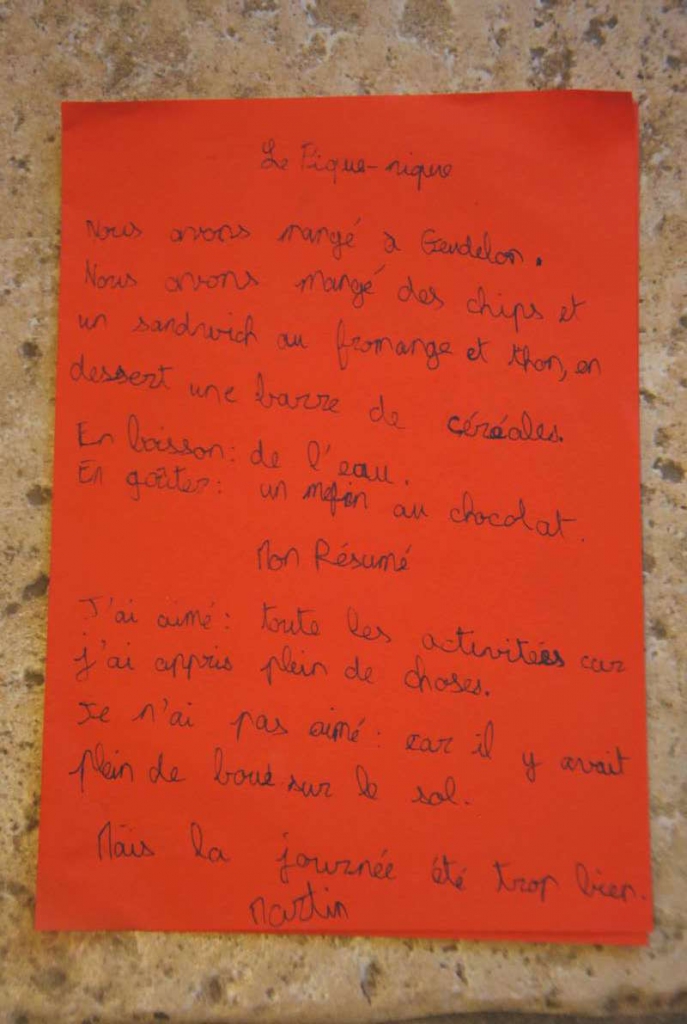 Le Pique-nique
Nous avons mangé à Geudelon.
Nous avons mangé des chips et
un sandwich au fromange et thon, en
dessert une barre de céréales.
En boisson: de l'eau.
En goûter: un mofin au chocolat.
Mon Résumé
J'ai aimé: toute les activitées car
j'ai appris plein de choses.
Je n'ai pas aimé: car il y avait
plein de boue sur le sol.
Mais la journée été trop bien.
Martin